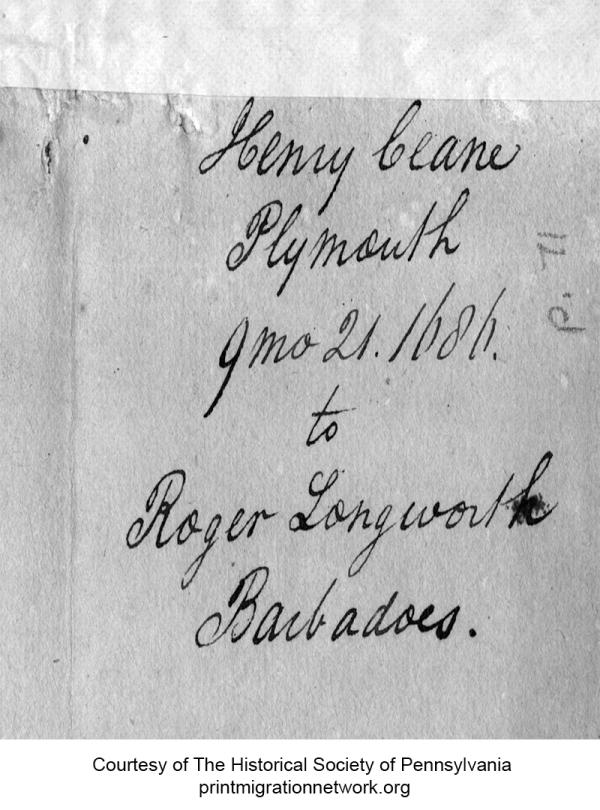 Henry Ceane
Plymouth
9mo 21. 1686.
to
Roger Longworth
Barbadoes.
p. 71
Courtesy of The Historical Society of Pennsylvania
printmigrationnetwork.org